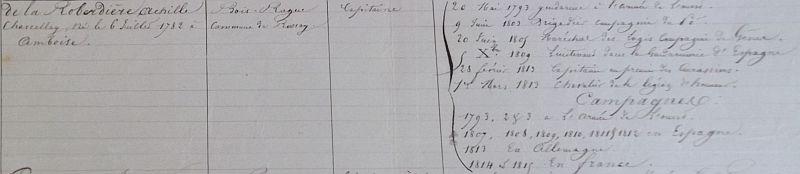 de la Roberdière Achille
Chancellay, né le 6 Juillet 1782 à
Amboise.
Bois Hague
Commune de
Capitaine
20 Mai 1793 gendarme à l'armée de
9 Juin 1803 Brigadier Compagnie de
20 Juin 1805 Maréchal des Logis Compagnie de
5 Xbre 1809 Lieutenant dans la Gendarmerie d'Espagne
28 février 1813 Capitaine au des Cuirassiers.
1er Mars 1813 Chevalier de la légion d'honneur.
Campagnes
1793, 2 & 3 à l'armée de
1807, 1808, 1809, 1810, 1811 & 1812 en Espagne.
1813 En Allemagne
1814 & 1815 En france.